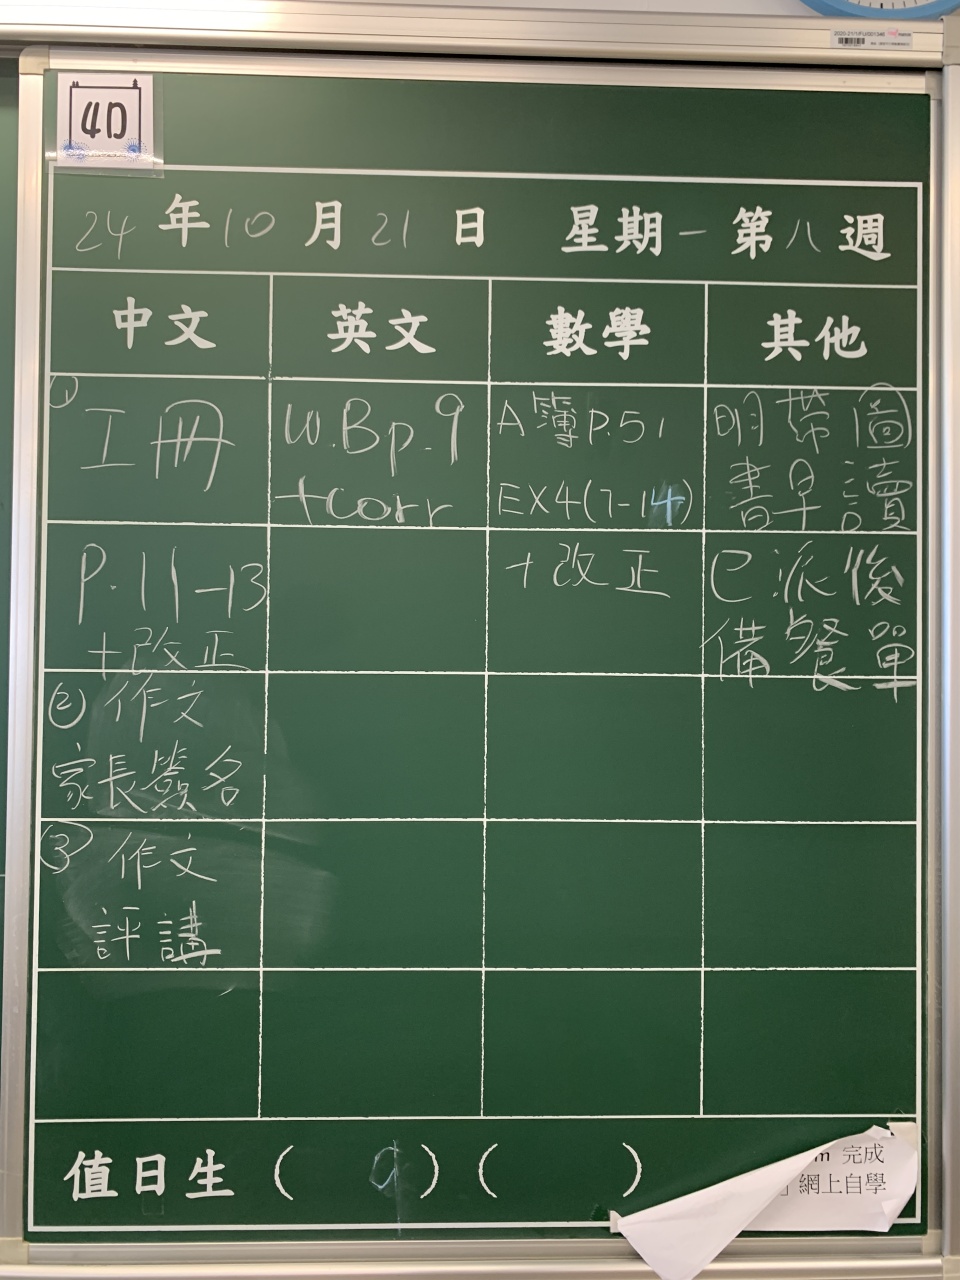 4D
24年10月21日 星期一第八週
中文 英文 數學 其他
① 工冊
P.11-13
+改正
② 作文
家長簽名
③ 作文
評講
W.Bp.9
+corr
A簿P.51
EX4(7-14)
+改正
明帶圖
書早讀
已派後
備餐單
值日生( 9 )( )
m 完成
」網上自學